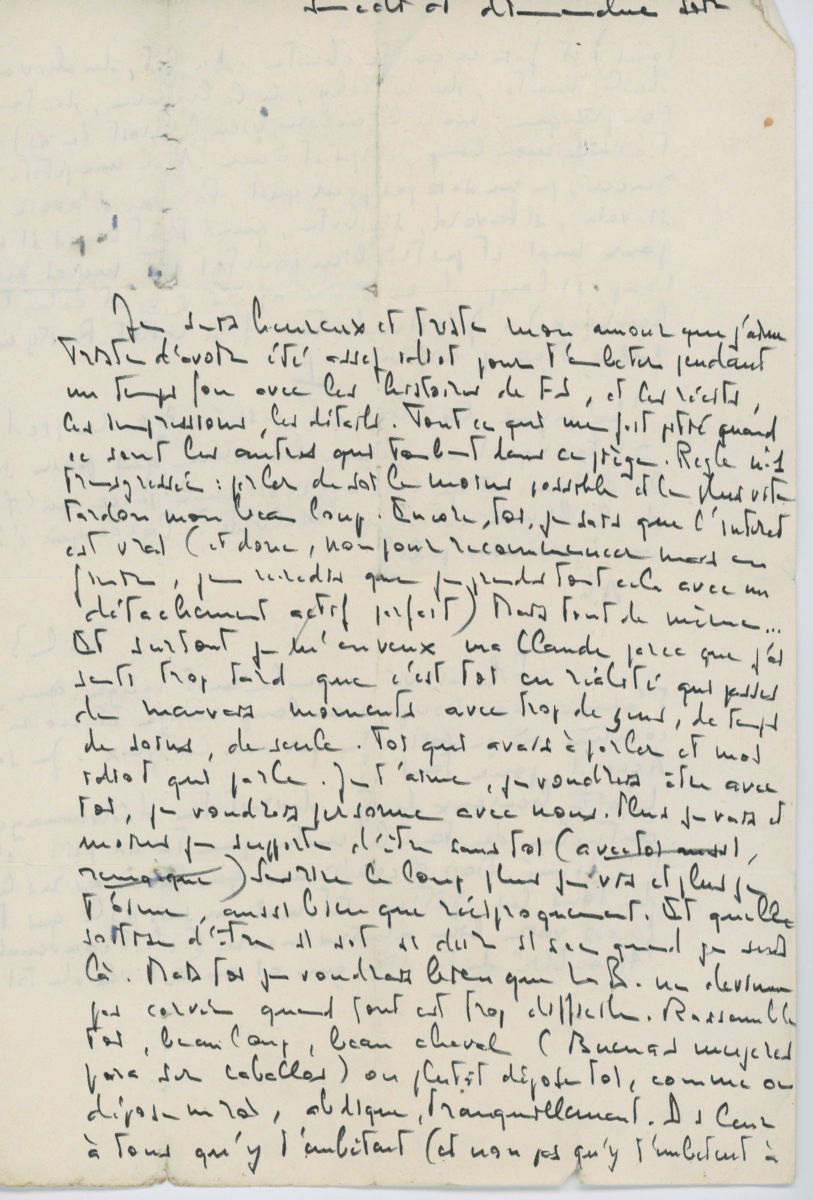 samedi et dimanche soir
Je suis heureux et triste mon amour que j'aime
triste d'avoir été assez idiot pour t'embêter pendant
un temps fou avec les histoires de FS, et les récits,
les impressions, les détails. Tout ce qui me fait pitié quand
ce sont les autres qui tombent dans ce piège. Règle n°1
transgressée : parler de soi le moins possible et le plus vite
pardon mon beau loup. Encore, toi, je sais que l'intérêt
est vrai (et donc, non pour recommencer mais en
finir, je redis que je prends tout cela avec un
détachement actif parfait) Mais tout de même...
Et surtout je m'en veux ma Claude parce que j'ai
senti trop tard que c'est toi en réalité qui passes
de mauvais moments avec trop de gens, de temps
de soins, de seule. Toi qui avais à parler et moi
idiot qui parle. Je t'aime, je voudrais être avec
toi, je voudrais personne avec nous. Plus je vais et
moins je supporte d'être sans toi (avec toi aussi,
remarque) Sourire le loup plus je vis et plus je
t'aime, aussi bien que réciproquement. Et quelle
sottise d'être si sot si dur si sec quand je suis
là. Mais toi je voudrais bien que L.B. ne devienne
pas corvée quand tout est trop difficile. Rassemble
toi, beau loup, beau cheval (Buenas mujeres
para sus caballos) ou plutôt dépose toi, comme on
dépose un roi, abdique, tranquillement. Dis leur
à tous qu'y t'embêtent (et non pas qu'y t'embêtent à